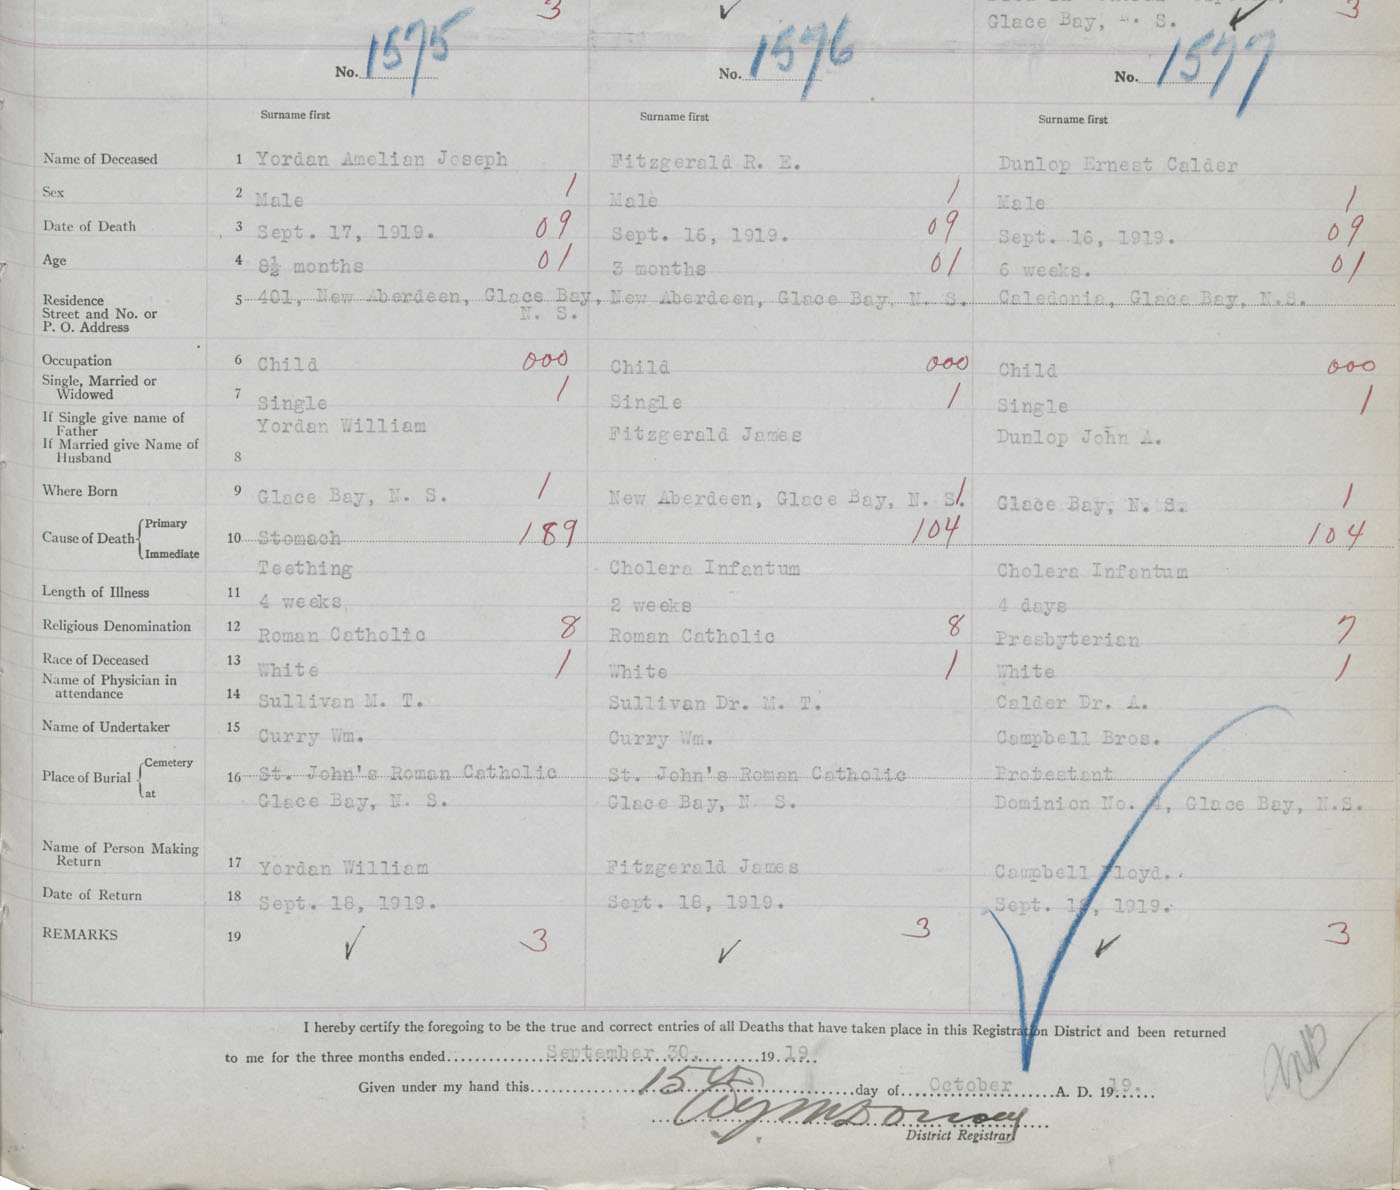 3 ✓ 3
Glace Bay, N. S. ✓
No. 1575 No. 1576 No. 1577
Surname first Surname first Surname first
Name of Deceased 1 Yordan Amelian Joseph Fitzgerald R. E. Dunlop Ernest Calder
Sex 2 Male 1 Male 1 Male 1
Date of Death 3 Sept. 17, 1919. 09 Sept. 16, 1919. 09 Sept. 16, 1919. 09
Age 4 8½ months 01 3 months 01 6 weeks. 01
Residence 5 401, New Aberdeen, Glace Bay, New Aberdeen, Glace Bay, N. S. Caledonia, Glace Bay, N.S.
Street and No. or N. S.
P. O. Address
Occupation 6 Child 000 Child 000 Child 000
Single, Married or
Widowed 7 Single 1 Single 1 Single 1
If Single give name of Yordan William
Father Fitzgerald James Dunlop John A.
If Married give Name of
Husband 8
Where Born 9 Glace Bay, N. S. 1 New Aberdeen, Glace Bay, N. S. 1 Glace Bay, N. S. 1
Cause of Death Primary 10 Stomach 189 104 104
Immediate Teething Cholera Infantum Cholera Infantum
Length of Illness 11 4 weeks, 2 weeks 4 days
Religious Denomination 12 Roman Catholic 8 Roman Catholic 8 Presbyterian 7
Race of Deceased 13 White 1 White 1 White 1
Name of Physician in
attendance 14 Sullivan M. T. Sullivan Dr. M. T. Calder Dr. A.
Name of Undertaker 15 Curry Wm. Curry Wm. Campbell Bros.
Place of Burial Cemetery 16 St. John's Roman Catholic St. John's Roman Catholic Protestant
at Glace Bay, N. S. Glace Bay, N S. Dominion No. 4, Glace Bay, N.S.
Name of Person Making
Return 17 Yordan William Fitzgerald James Campbell Lloyd.
Date of Return 18 Sept. 18, 1919. Sept. 18, 1919. Sept. 18, 1919.
REMARKS 19 ✓ 3 ✓ 3 ✓ 3
I hereby certify the foregoing to be the true and correct entries of all Deaths that have taken place in this Registration District and been returned
to me for the three months ended September 30, 1919.
Given under my hand this 15th day of October A. D. 1919.
District Registrar